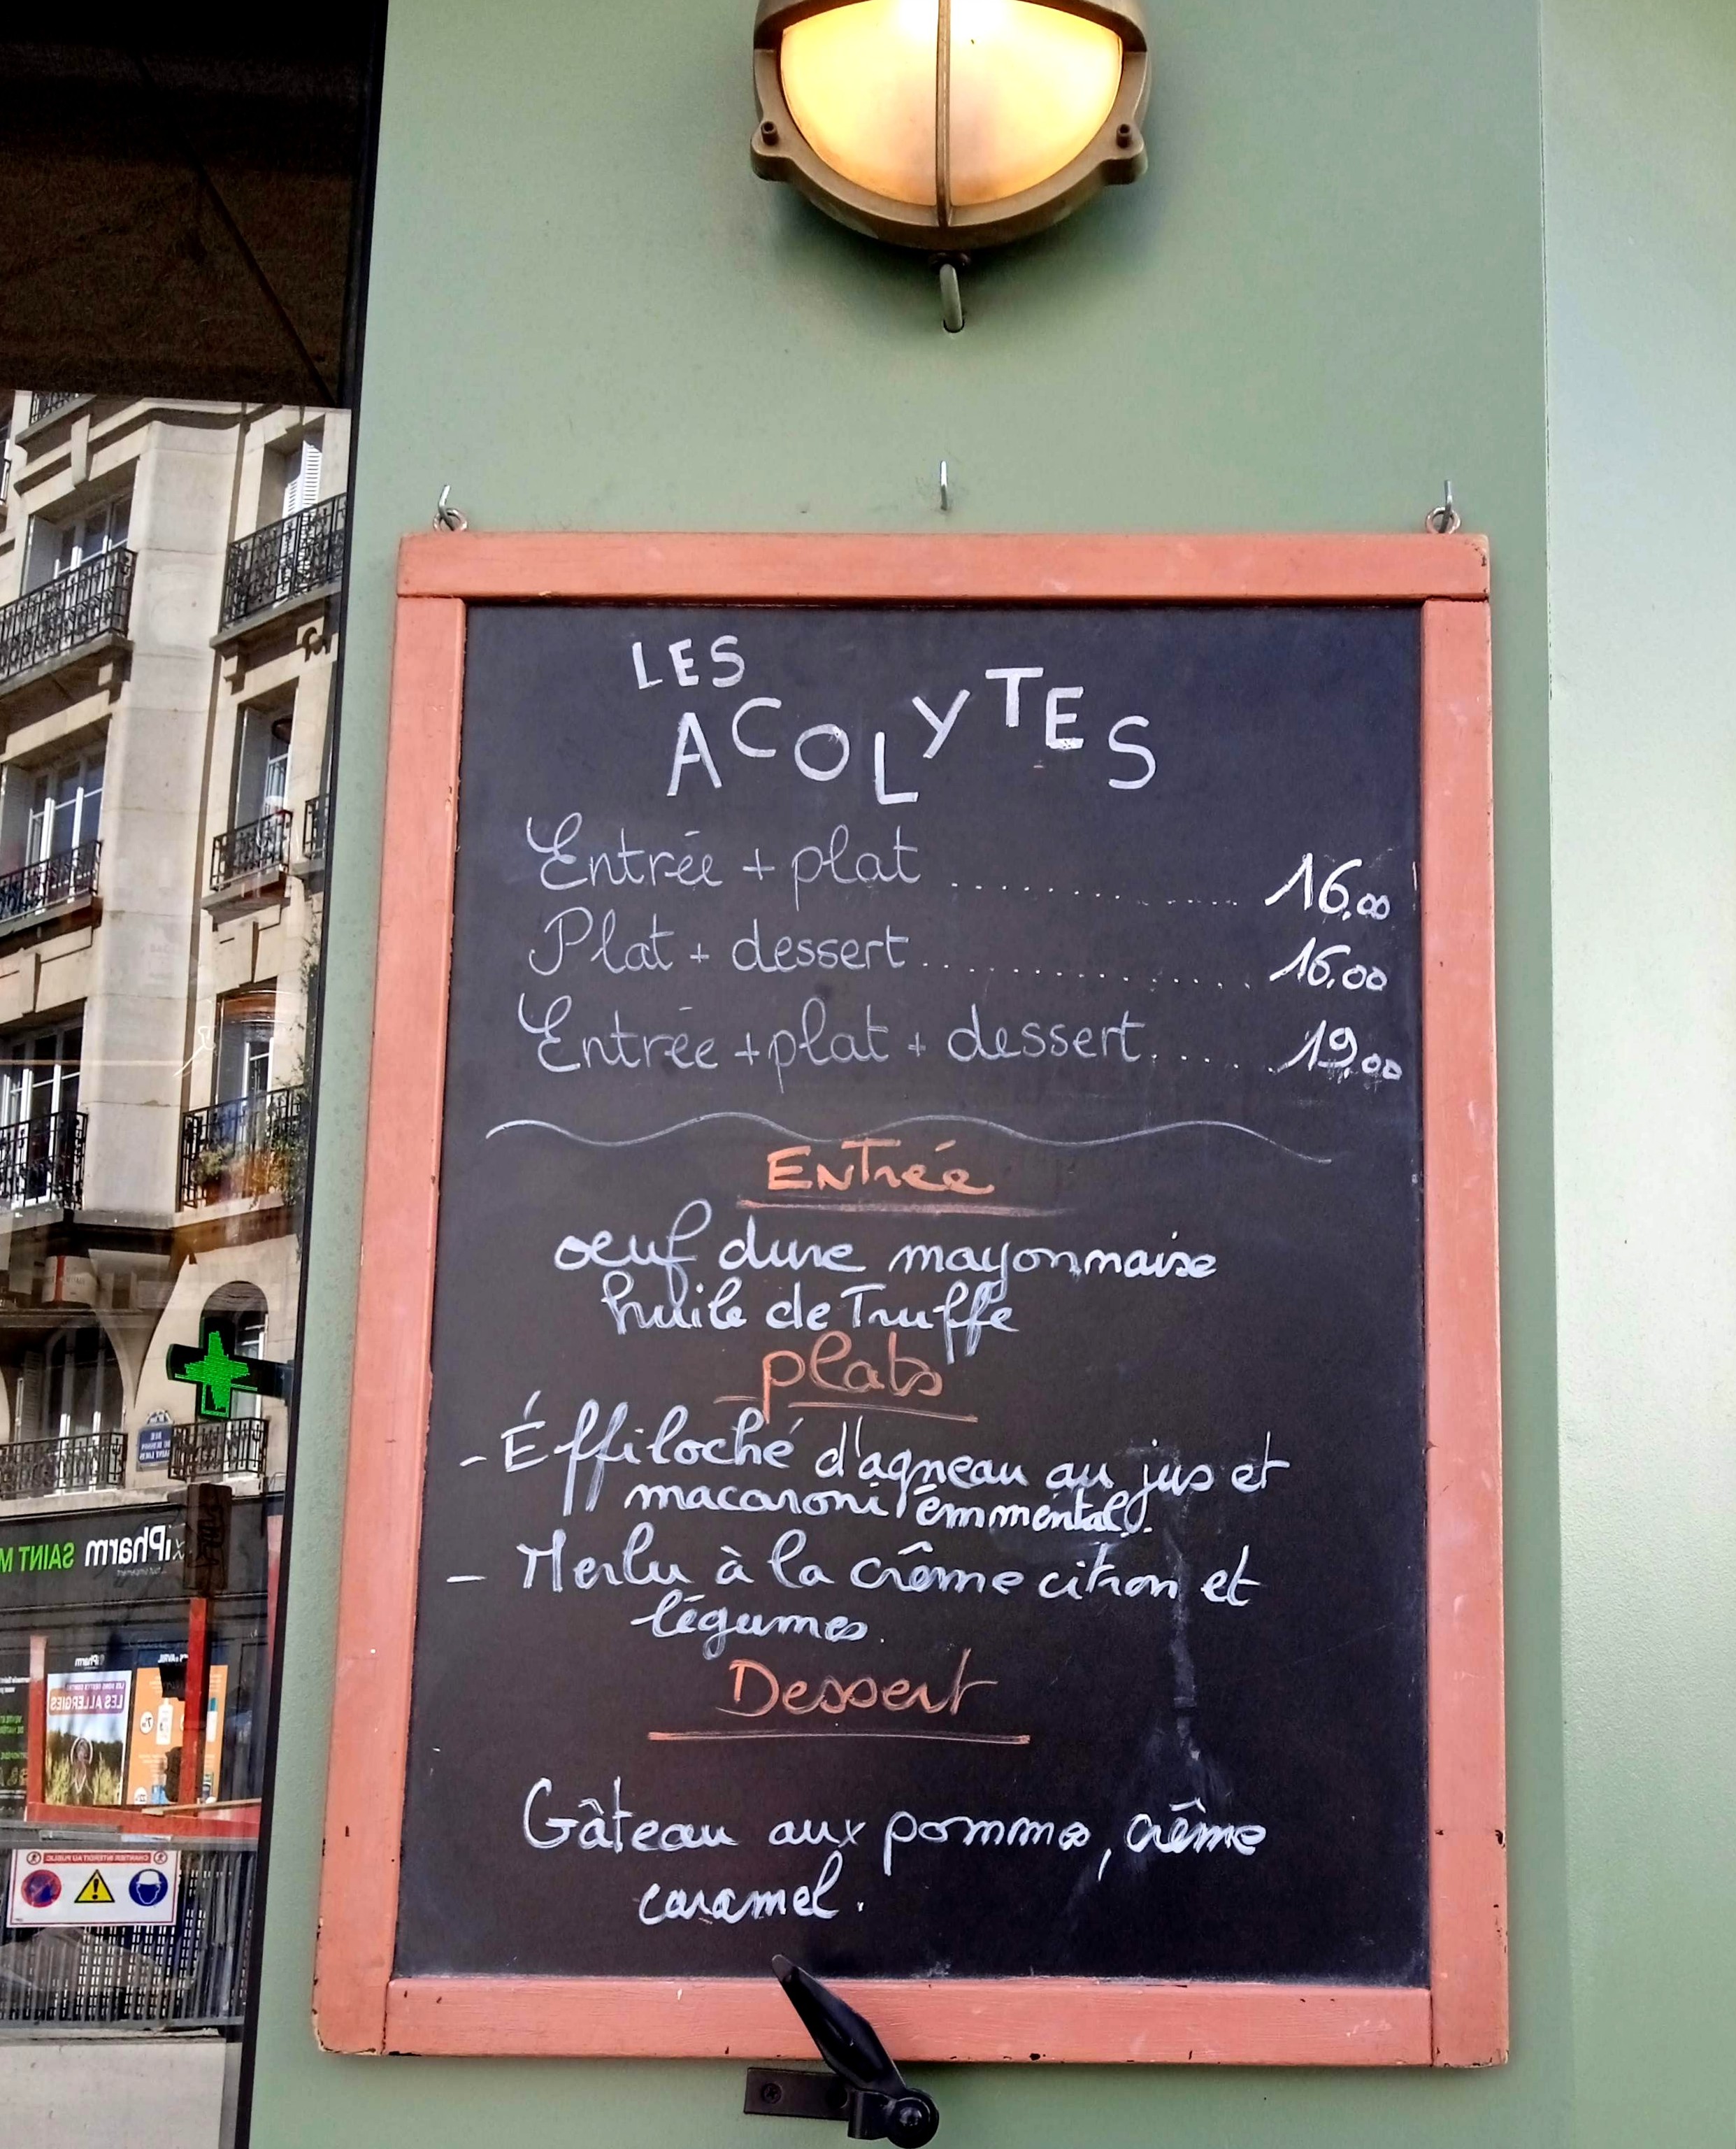 LES
ACOLYTES
Entrée + plat .......... 16,00
Plat + dessert .......... 16,00
Entrée + plat + dessert .... 19,00
Entrée
oeuf dure mayonnaise
huile de Truffe
plats
- Éffiloché d'agneau au jus et
macaroni émmental.
- Merlu à la crême citron et
légumes.
Dessert
Gâteau aux pommes, crême
caramel.
iPharm
SAINT M
LES ALLERGIES
CHANTIER INTERDIT AU PUBLIC